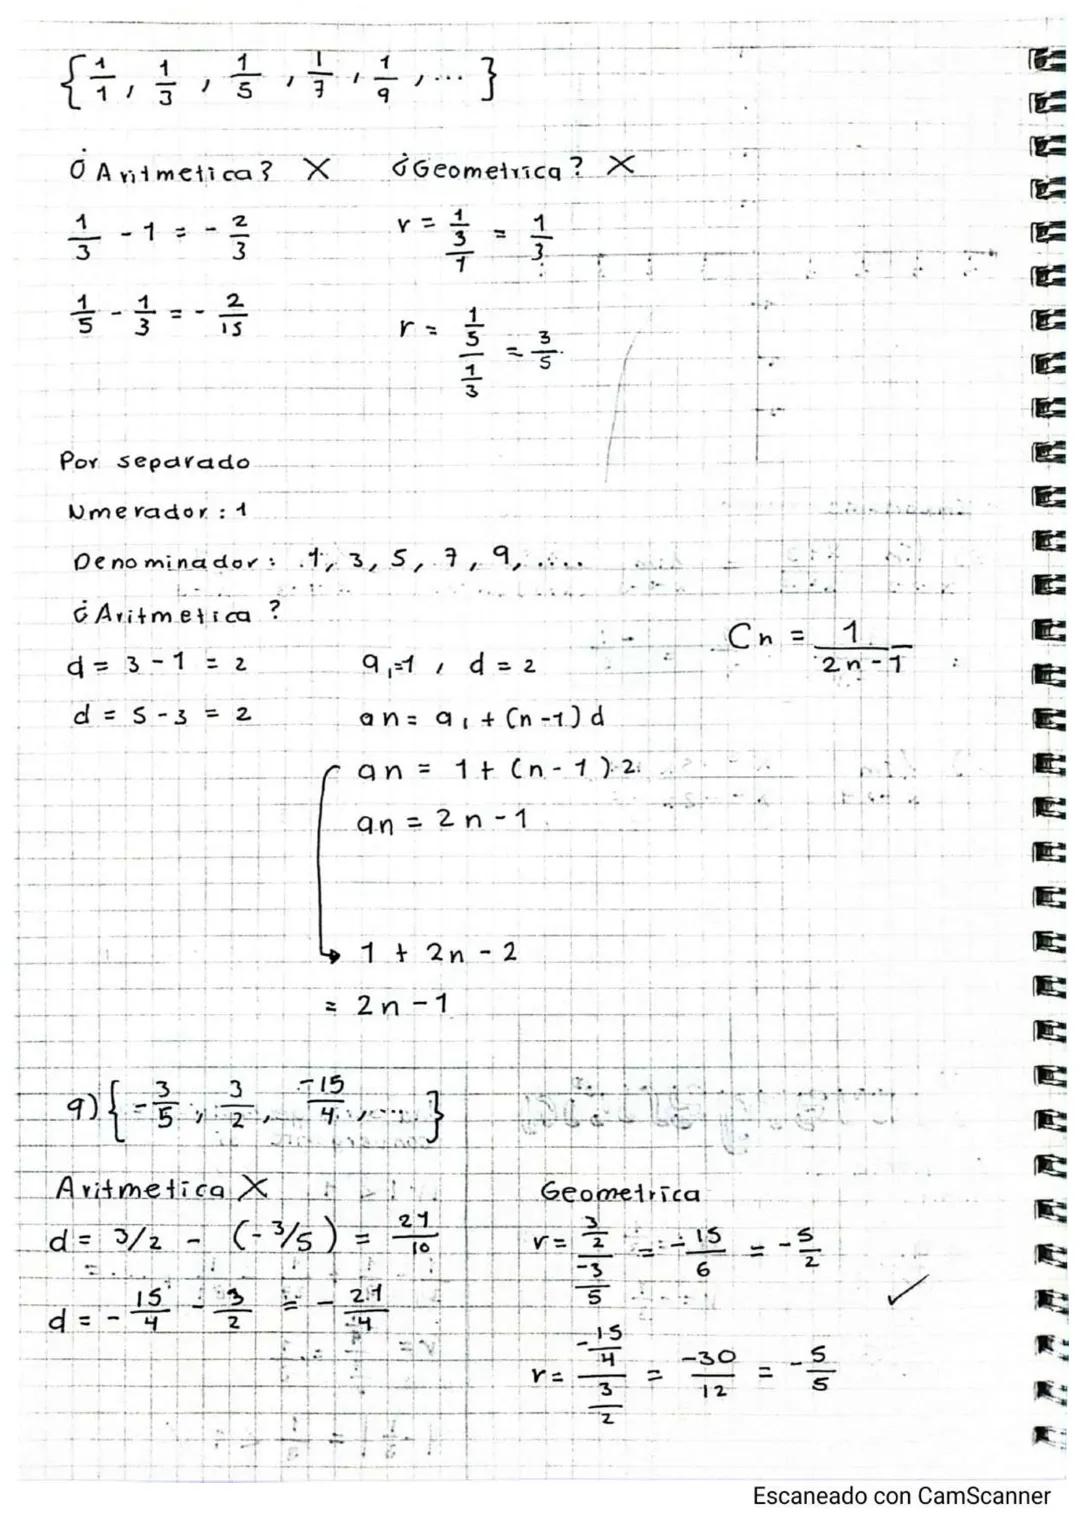 { 1/1, 1/3, 1/5, 1/7, 1/9, ... }
¿Aritmetica? X ¿Geometrica? X
1/3 - 1 = - 2/3 r = (1/3)/1 = 1/3
1/5 - 1/3 = - 2/15 r = (1/5)/(1/3) = 3/5
Por separado
Numerador: 1
Denominador: 1, 3, 5, 7, 9, ....
¿Aritmetica?
Cn = 1/(2n-1)
d = 3 - 1 = 2 a1=1, d = 2
d = 5 - 3 = 2 an = a1 + (n-1) d
an = 1 + (n-1).2
an = 2n - 1
1 + 2n - 2
= 2n - 1
9) { -3/5, 3/2, -15/4, ... }
Aritmetica X Geometrica
d = 3/2 - (-3/5) = 21/10 r = (3/2)/(-3/5) = -15/6 = -5/2 ✓
d = -15/4 - 3/2 = -21/4
r = (-15/4)/(3/2) = -30/12 = -5/5
Escaneado con CamScanner